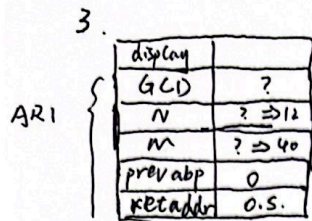 3.
display
GCD ?
N ? ⇒ 12
AR1
M ? ⇒ 40
prev abp 0
Ret addr O.S.